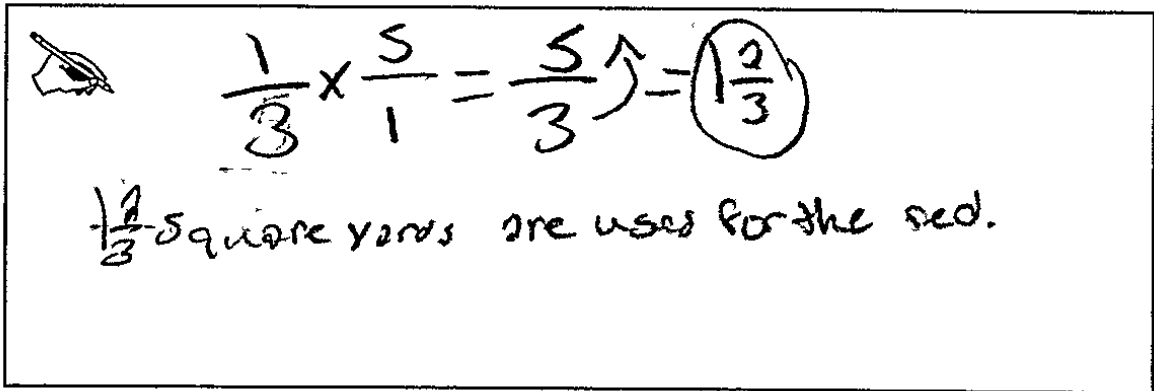 1/3 x 5/1 = 5/3 = 1 2/3
1 2/3 square yards are uses for the red.